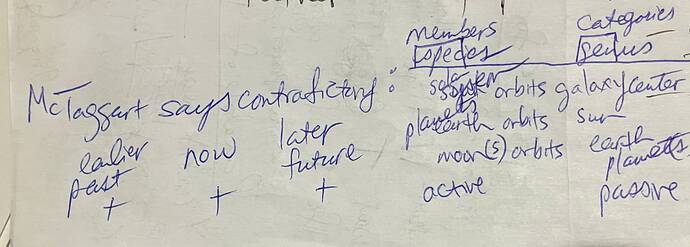 members Categories
species genus
McTaggart says contradictory: solar system orbits galaxy center
planets earth orbits sun
earlier now later moon(s) orbits earth planets
past future
+ + + active passive